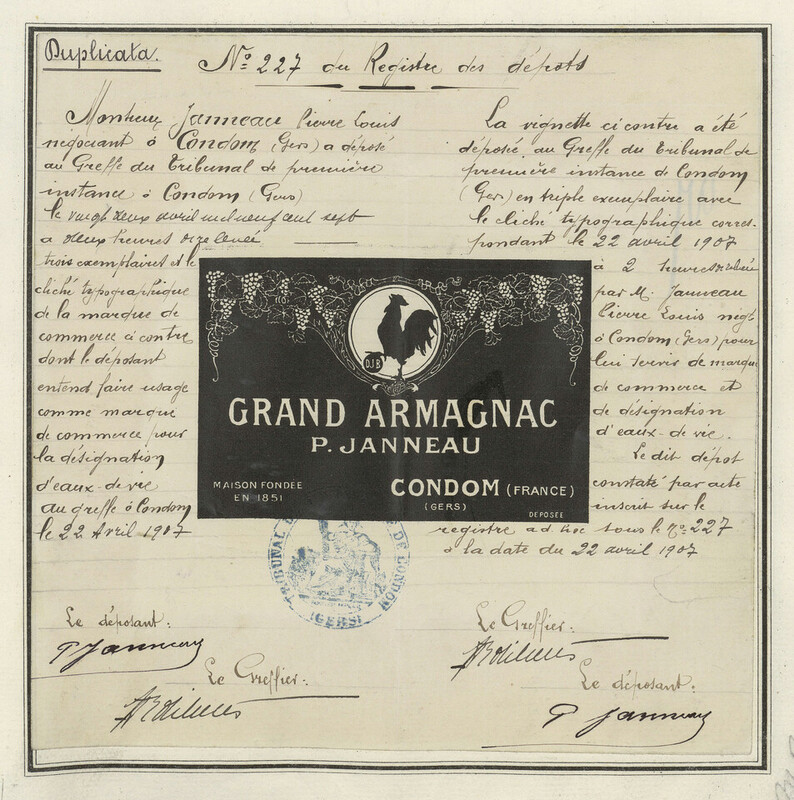 Duplicata.
Nº 227 du Registre des dépots
Monsieur Janneau Pierre Louis
négociant à Condom (Gers) a déposé
au Greffe du Tribunal de première
instance à Condom (Gers)
le vingt deux avril mil neuf cent sept
a deux heures de relevée
trois exemplaires et le
cliché typographique
de la marque de
commerce ci contre
dont le déposant
entend faire usage
comme marque
de commerce pour
la désignation
d'eaux-de-vie
au greffe à Condom
le 22 Avril 1907
La vignette ci contre a été
déposée au Greffe du Tribunal de
première instance de Condom
(Gers) en triple exemplaire avec
le cliché typographique corres-
pondant le 22 avril 1907
à 2 heures de relevée
par M. Janneau
Pierre Louis négt
à Condom (Gers) pour
lui servir de marque
de commerce et
de désignation
d'eaux-de-vie.
Le dit dépot
constaté par acte
inscrit sur le
registre ad hoc sous le nº 227
à la date du 22 avril 1907
DJB
GRAND ARMAGNAC
P. JANNEAU
MAISON FONDÉE
EN 1851
CONDOM (FRANCE)
(GERS)
DÉPOSÉE
TRIBUNAL DE CONDOM
(GERS)
Le déposant:
P Janneau
Le Greffier:
Le Greffier:
Le déposant:
P Janneau